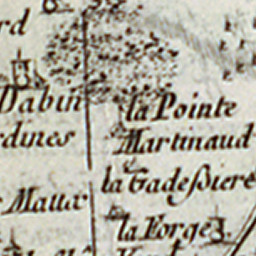 rd
Dabin
la Pointe
dines
Martinaud
la Gadeßiere
Maux
la Forge